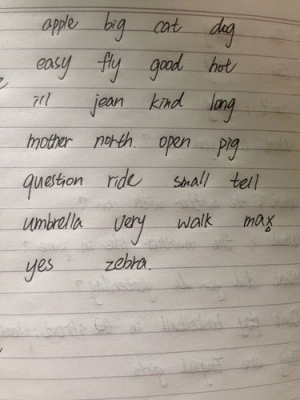 apple big cat dog
easy fly good hot
ill jean kind long
mother north open pig
question ride small tell
umbrella very walk max
yes zebra.